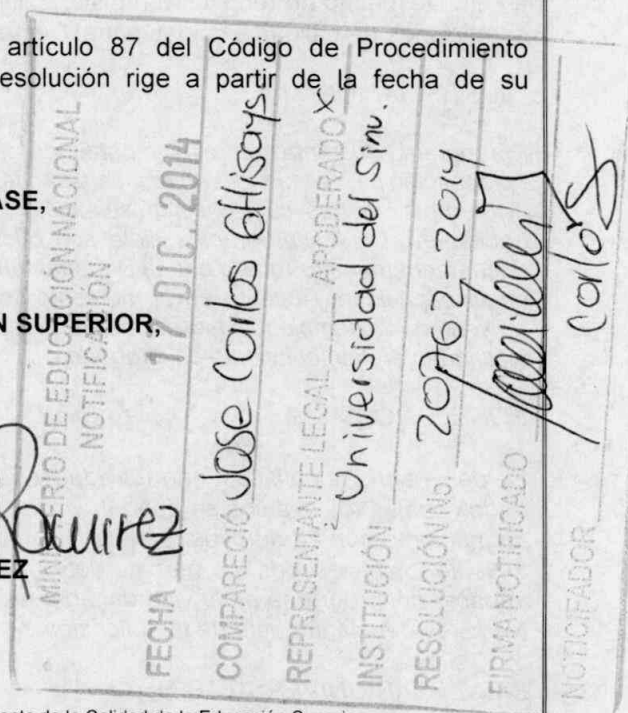 artículo 87 del Código de Procedimiento
esolución rige a partir de la fecha de su
ASE,
N SUPERIOR,
Ramirez
EZ
MINISTERIO DE EDUCACIÓN NACIONAL
NOTIFICACIÓN
FECHA 17 DIC. 2014
COMPARECIÓ Jose Carlos Ghisays
REPRESENTANTE LEGAL APODERADO X
INSTITUCIÓN Universidad del Sinu.
RESOLUCIÓN No 20764 2014
FIRMA NOTIFICADO
NOTICFADOR Carlos
ento de la Calidad de la Educación Superior